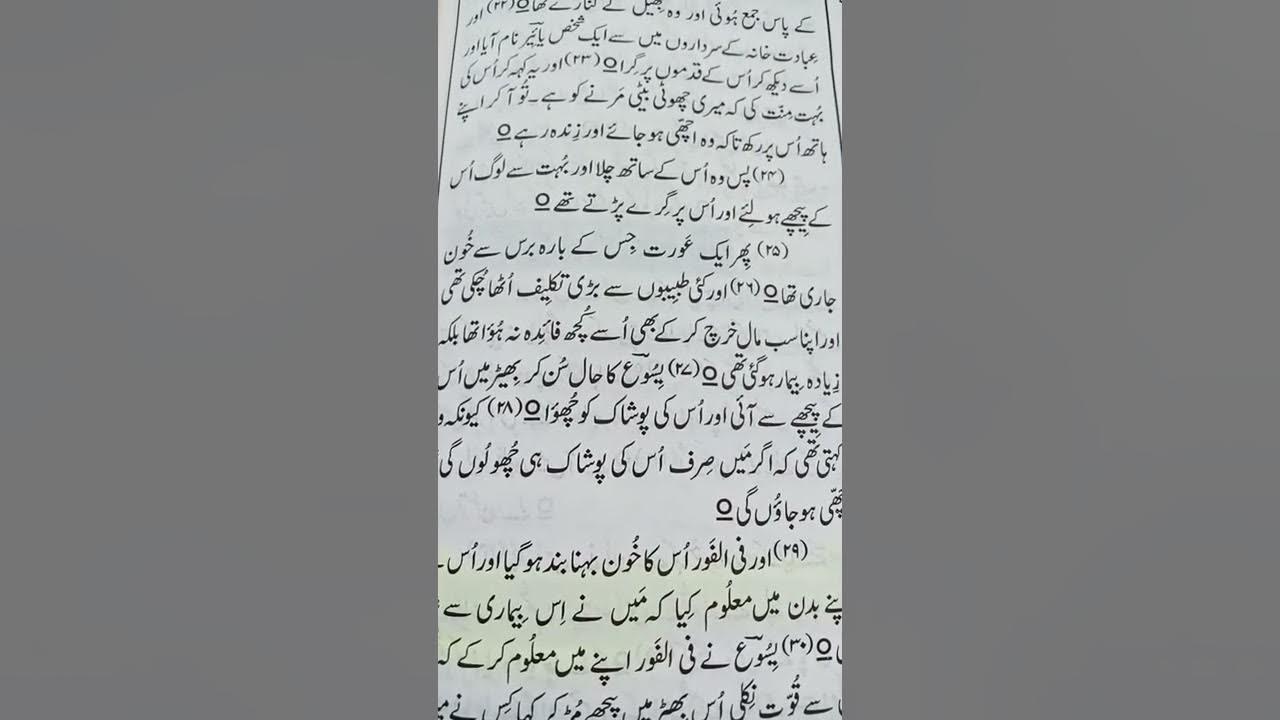 کے پاس جمع ہُوئی اور وہ جِھیل کے کنارے تھا○ (۲۲) اور
عِبادت خانہ کے سرداروں میں سے ایک شخص یائیر نام آیا اور
اُسے دیکھ کر اُس کے قدموں پر گِرا○ (۲۳) اور یہ کہہ کر اُس کی
بُہت مِنّت کی کہ میری چھوٹی بیٹی مَرنے کو ہے۔ تُو آ کر اپنے
ہاتھ اُس پر رکھ تاکہ وہ اچھّی ہو جائے اور زِندہ رہے○
(۲۴) پس وہ اُس کے ساتھ چلا اور بُہت سے لوگ اُس
کے پِیچھے ہو لِئے اور اُس پر گِرے پڑتے تھے○
(۲۵) پِھر ایک عَورت جِس کے بارہ برس سے خُون
جاری تھا○ (۲۶) اور کئی طبِیبوں سے بڑی تکلِیف اُٹھا چُکی تھی
اور اپنا سب مال خرچ کر کے بھی اُسے کُچھ فائِدہ نہ ہُؤا تھا بلکہ
زِیادہ بِیمار ہو گئی تھی○ (۲۷) یِسُوع کا حال سُن کر بِھیڑ میں اُس
کے پِیچھے سے آئی اور اُس کی پوشاک کو چُھؤا○ (۲۸) کیونکہ و
کہتی تھی کہ اگر مَیں صِرف اُس کی پوشاک ہی چُھو لُوں گی
چھّی ہو جاؤُں گی○
(۲۹) اور فی الفَور اُس کا خُون بہنا بند ہو گیا اور اُس
پنے بدن میں معلُوم کِیا کہ مَیں نے اِس بِیماری سے
○ (۳۰) یِسُوع نے فی الفَور اپنے میں معلُوم کر کے کہ
سے قُوّت نِکلی اُس بِھیڑ میں پِیچھے مُڑ کر کہا کِس نے